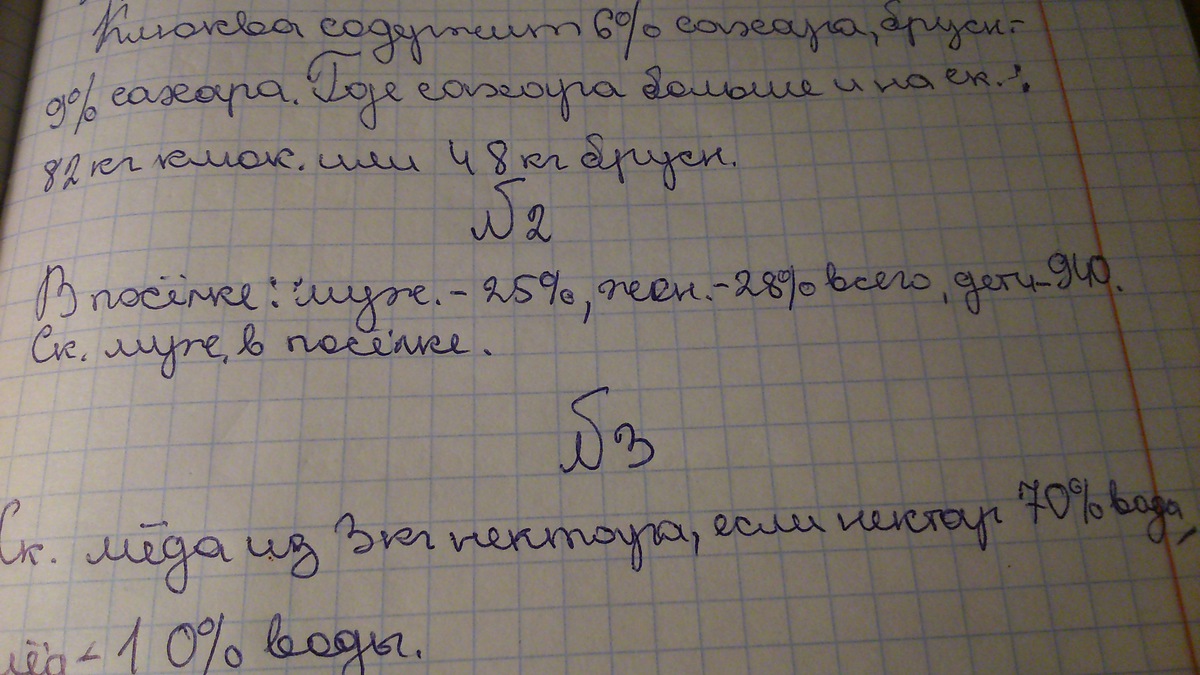 Клюква содержит 6% сахара, брусн.-
9% сахара. Где сахара больше и на ск.:
82 кг клюк. или 48 кг брусн.
№2
В посёлке: муж. - 25%, жен. - 28% всего, дети - 940.
Ск. муж. в посёлке.
№3
Ск. мёда из 3 кг нектара, если нектар 70% вода,
мёд - 10% воды.